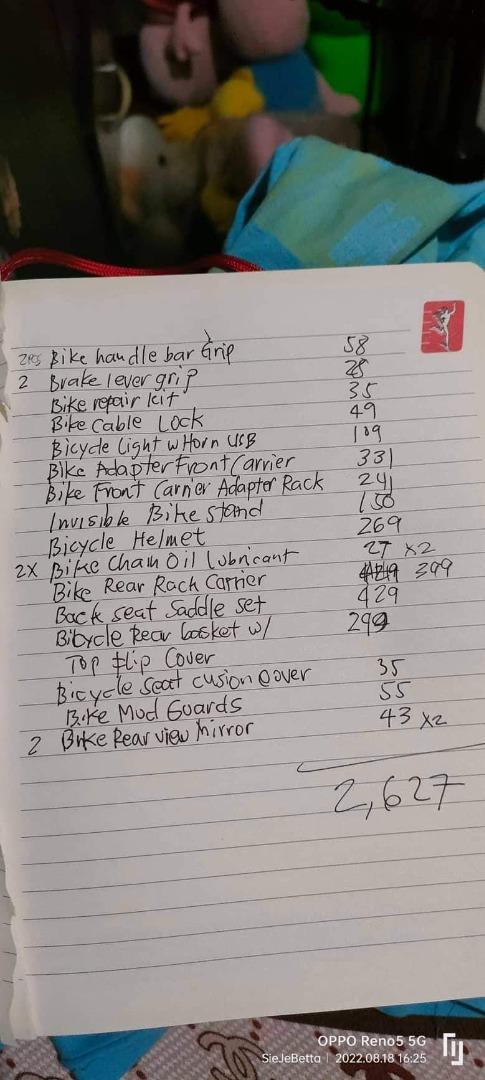 2pcs Bike handle bar Grip 58
2 Brake lever grip 28
Bike repair kit 35
Bike Cable Lock 49
Bicycle Light w Horn USB 109
Bike Adapter Front Carrier 331
Bike Front Carrier Adapter Rack 241
Invisible Bike stand 150
Bicycle Helmet 269
2X Bike Chain Oil Lubricant 27 x2
Bike Rear Rach Carrier 399
Back seat saddle set 429
Bibycle Rear basket w/ 299
Top flip Cover
Bicycle seat cusion cover 35
Bike Mud Guards 55
2 Bike Rear view Mirror 43 x2
2,627
OPPO Reno5 5G
SieJeBetta | 2022.08.18 16:25